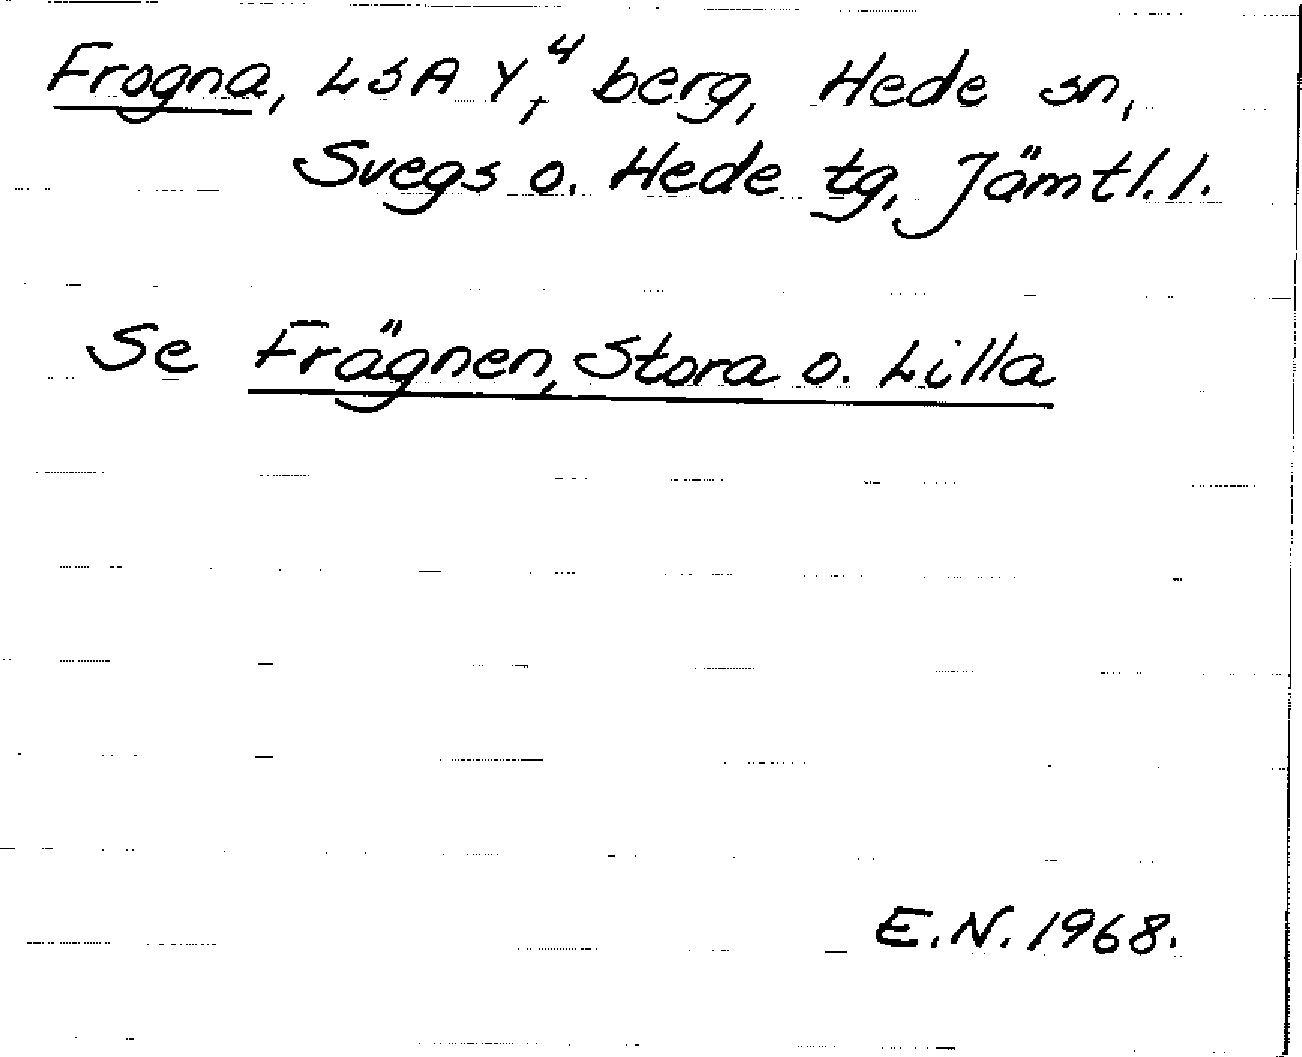 Frogna, LSA Y,⁴ berg, Hede sn,
Svegs o. Hede tg, Jämtl. l.
Se Frägnen, Stora o. Lilla
E.N. 1968.